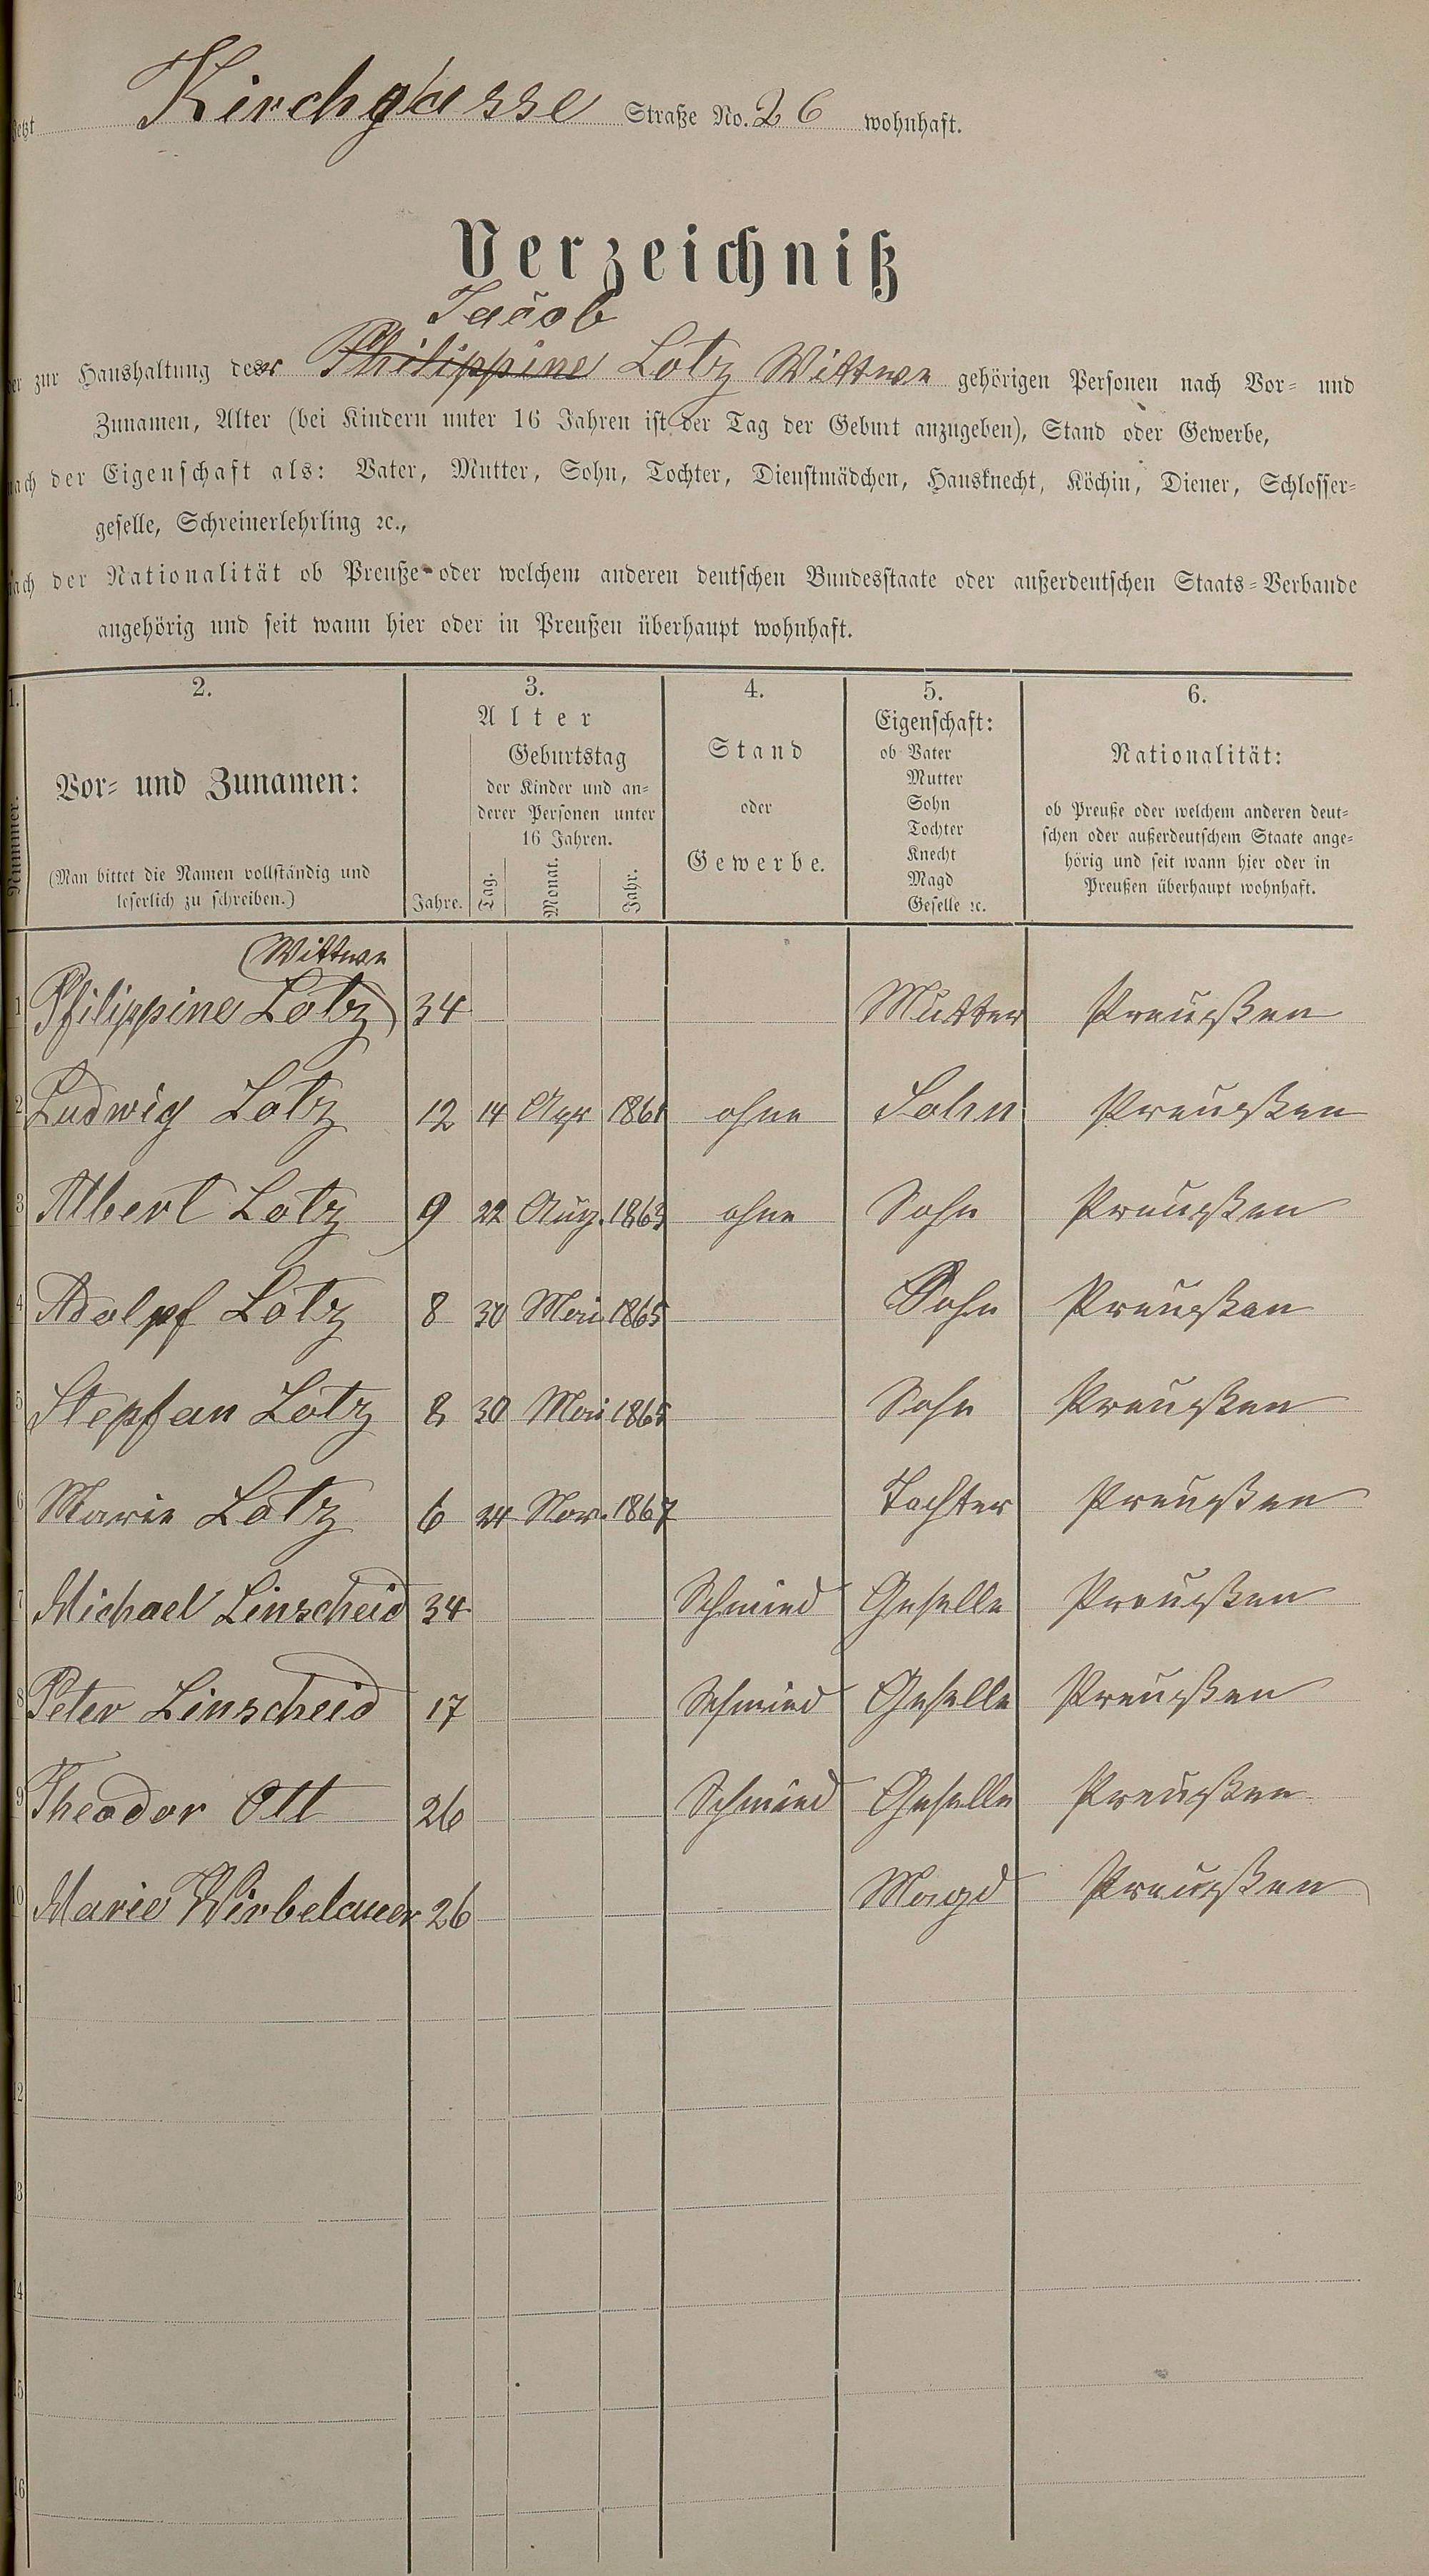 Jetzt Kirchgasse Straße No. 26 wohnhaft.
Verzeichniß
Jacob
der zur Haushaltung der Philippine Lotz Wittwe gehörigen Personen nach Vor- und
Zunamen, Alter (bei Kindern unter 16 Jahren ist der Tag der Geburt anzugeben), Stand oder Gewerbe,
nach der Eigenschaft als: Vater, Mutter, Sohn, Tochter, Dienstmädchen, Hausknecht, Köchin, Diener, Schlosser-
geselle, Schreinerlehrling ꝛc.,
nach der Nationalität ob Preuße oder welchem anderen deutschen Bundesstaate oder außerdeutschen Staats-Verbande
angehörig und seit wann hier oder in Preußen überhaupt wohnhaft.
1. 2. 3. 4. 5. 6.
Nummer.
Vor- und Zunamen:
(Man bittet die Namen vollständig und
leserlich zu schreiben.)
Alter
Jahre.
Geburtstag
der Kinder und an-
derer Personen unter
16 Jahren.
Tag. Monat. Jahr.
Stand
oder
Gewerbe.
Eigenschaft:
ob Vater
Mutter
Sohn
Tochter
Knecht
Magd
Geselle ꝛc.
Nationalität:
ob Preuße oder welchem anderen deut-
schen oder außerdeutschem Staate ange-
hörig und seit wann hier oder in
Preußen überhaupt wohnhaft.
(Wittwe
1 Philippine Lotz) 34 Mutter Preußen
2 Ludwig Lotz 12 14 Apr 1861 ohne Sohn Preußen
3 Albert Lotz 9 22 Aug. 1863 ohne Sohn Preußen
4 Adolpf Lotz 8 30 Mai 1865 Sohn Preußen
5 Stepfan Lotz 8 30 Mai 1865 Sohn Preußen
6 Marie Lotz 6 24 Nov. 1867 Tochter Preußen
7 Michael Linscheid 34 Schmied Geselle Preußen
8 Peter Linscheid 17 Schmied Geselle Preußen
9 Theodor Ott 26 Schmied Geselle Preußen
10 Marie Wirbelauer 26 Magd Preußen
11
12
13
14
15
16